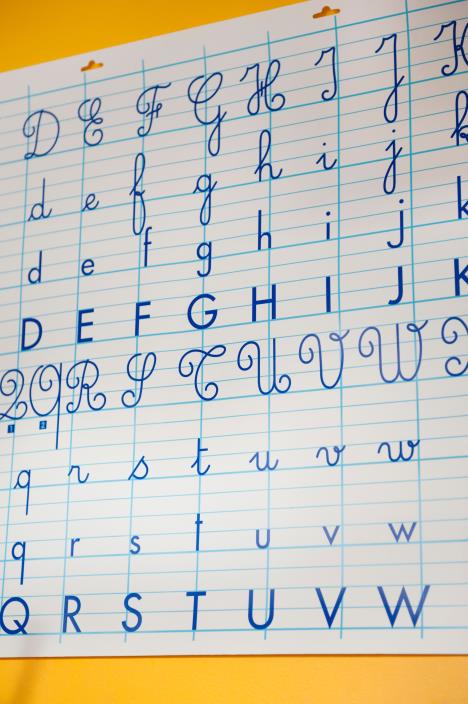 D E F G H I J K
d e f g h i j k
d e f g h i j k
D E F G H I J K
Q Q R S T U V W
1 2
q r s t u v w
q r s t u v w
Q R S T U V W